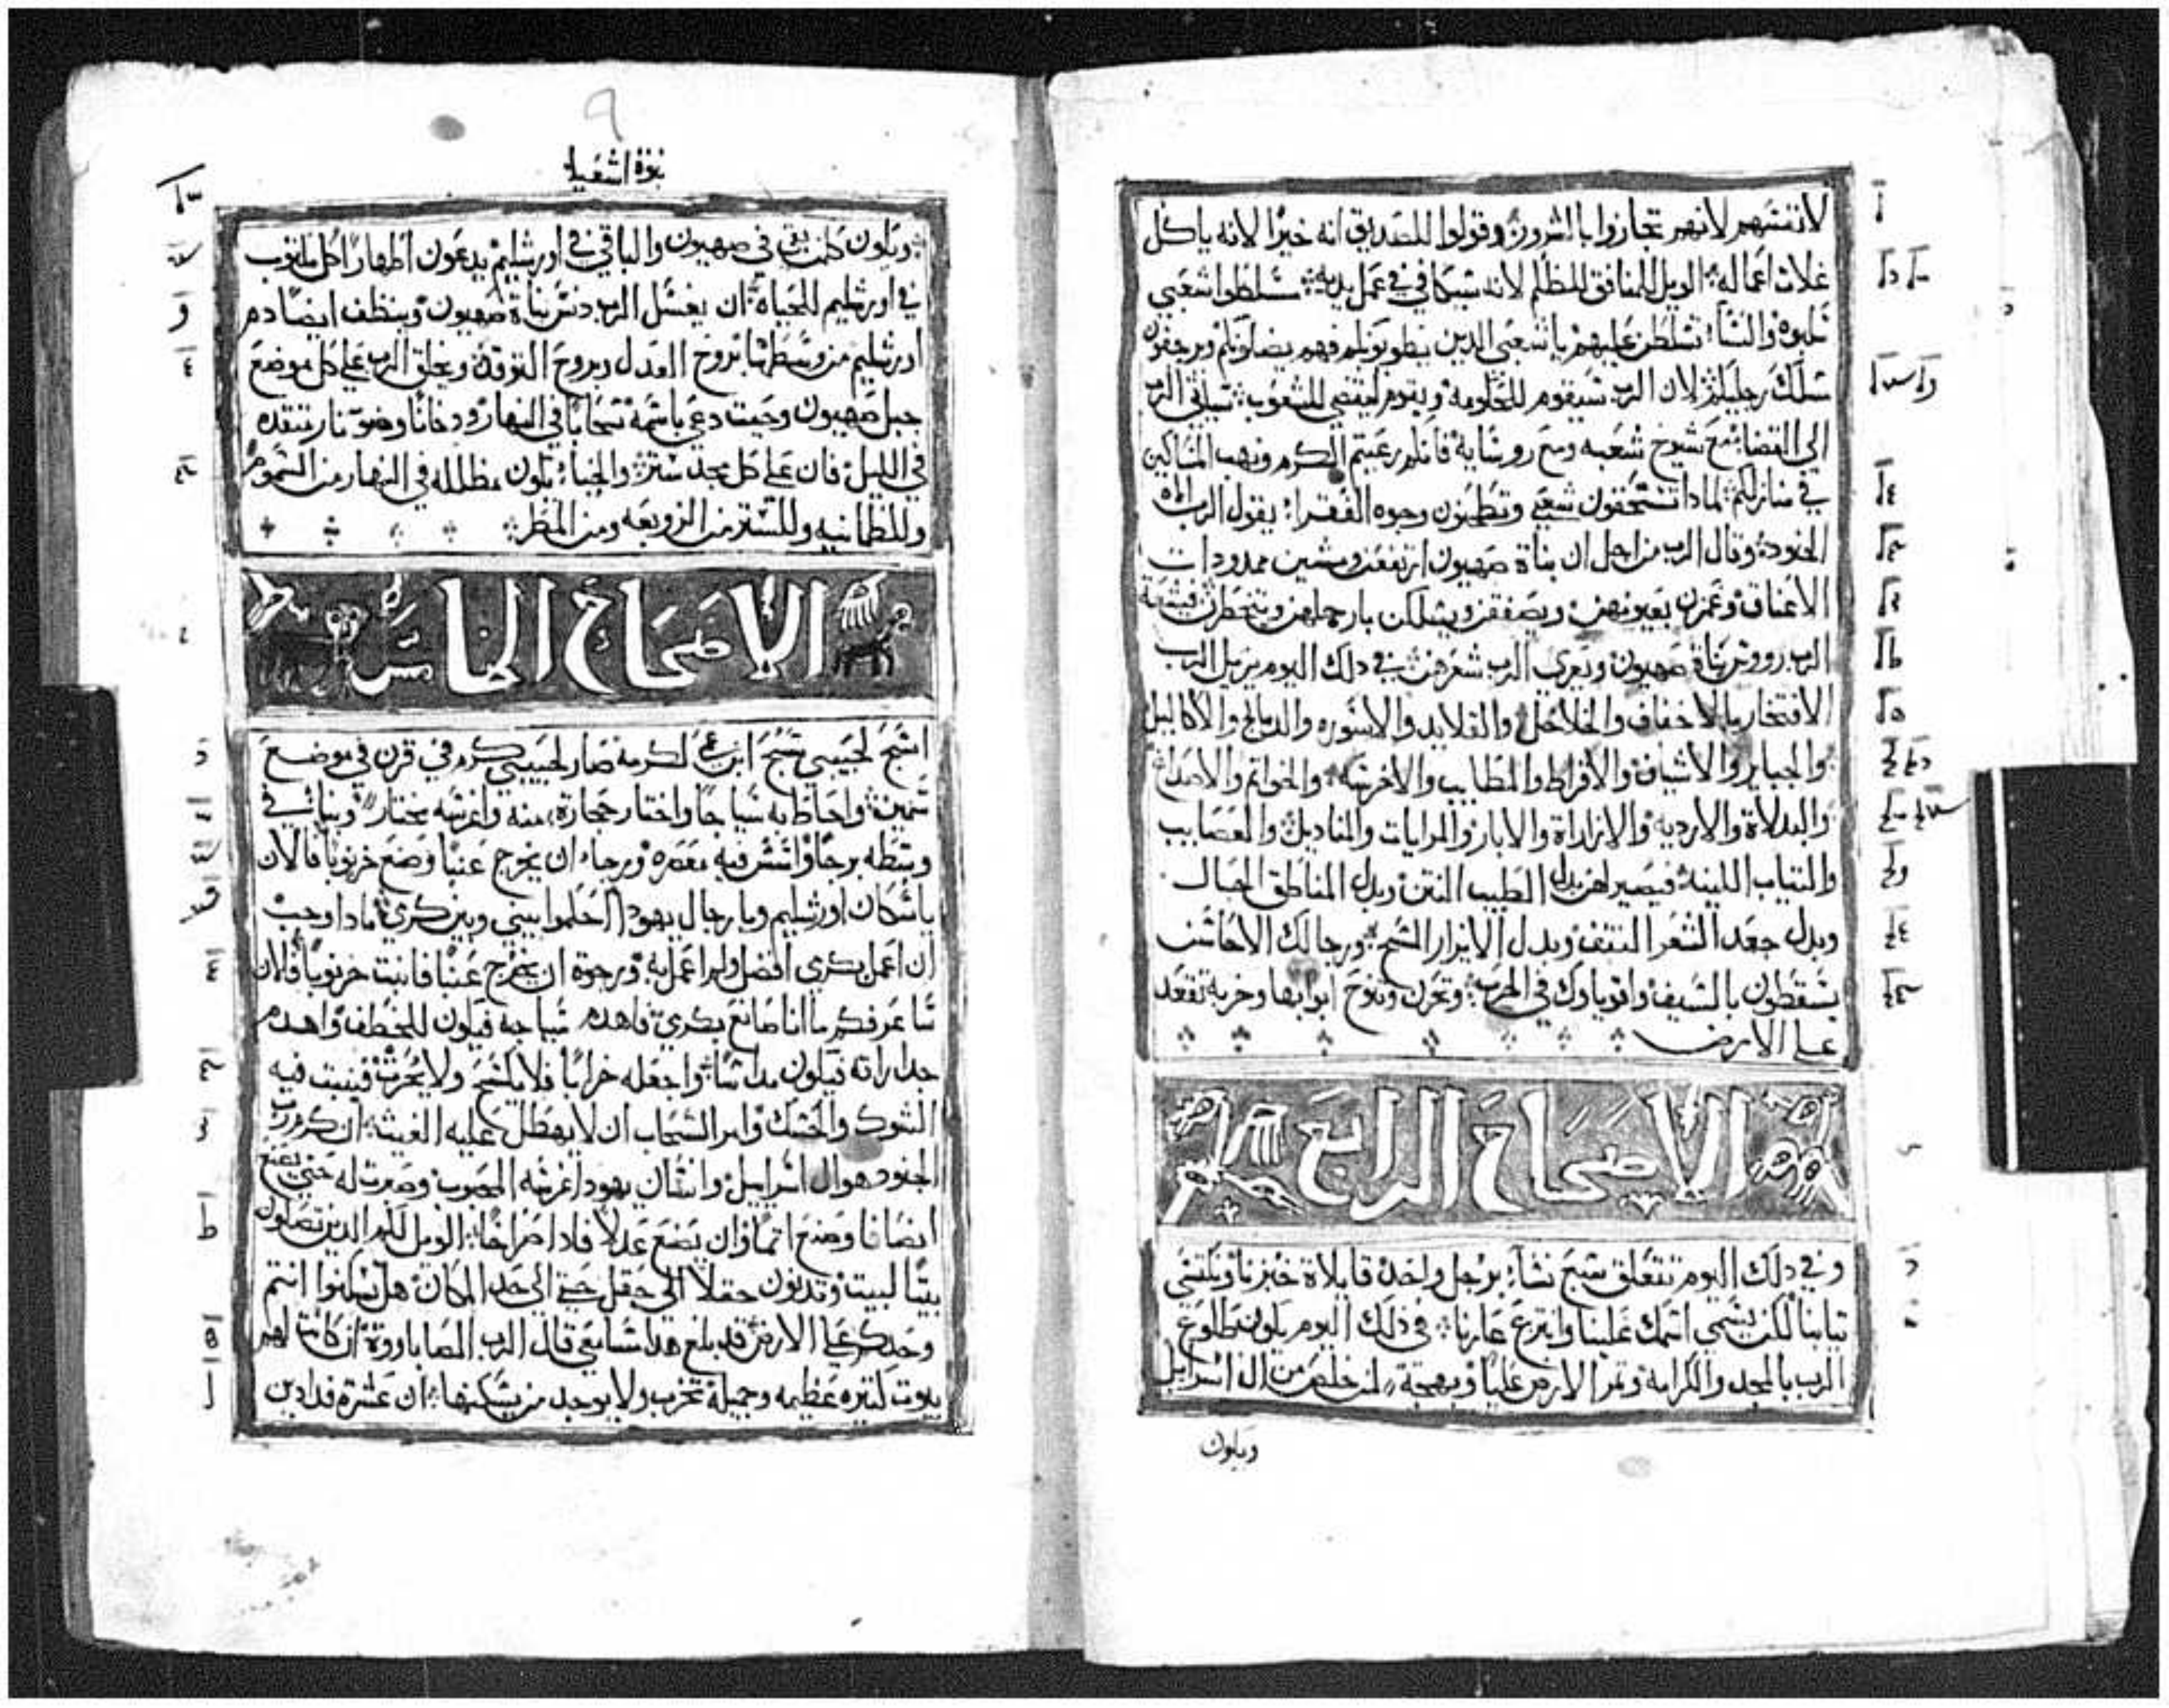 لاتنتنهم لانهم تجازوا بالشرور وقولوا للصديق انه خيرا لانه ياكل
غلات اعماله الويل للمنافق للظلم لانه سيكافي في عمل يديه تسلطوا شعبي
نلبوه والنسا تسلطن عليهم ياشعبي الدين يطوبونكم فهم يضلونكم ويرجفون
سلك رجليكم لان الرب سيقوم للحكومة ويقوم ليقضي للشعوب سياتي الرب
الي القضا مع شيوخ شعبه ومع روسايه فانكم رعيتم الكرم ونهب المساكين
في منازلكم لمادا تسحقون شعبي وتطحنون وجوه الفقرا يقول الرب الاه
الجنود وقال الرب من اجل ان بناة صهيون ارتفعن ومشين ممدودات
الاعناق وغمزن بعيونهن ويصفقن ويسلكن بارجلهن ويتخطرن
الرب رووس بناة صهيون ويعري الرب شعرهن في دلك اليوم يزيل الرب
الافتخار بالاخفاف والخلاخل والقلايد والاسوره والدمالج والاكاليل
والجباير والاشياف والافراط والمطايب والاخرسه والخواتم والاصداغ
والبدلاة والارديه والازاراة والابار والمرايات والمناديل والعصايب
والتياب اللينة فيصير لهن بدل الطيب النتن وبدل المناطق الحبال
وبدل جعد الشعر النتف وبدل الازار المسح ورجالك الاحاسن
يسقطون بالسيف واقوياوك في الحرب وتحزن وتنوح ابوابها وخربة تقعد
علي الارض
الاصحاح الرابع
وفي دلك اليوم تتعلق سبع نسا برجل واحد قايلاة خبزنا وتكتسي
تيابنا لكن يسمي اسمك علينا وانزع عارنا في ذلك اليوم يكون طلوع
الرب بالمجد والكرامة وتمر الارض عليا وبهجة لمن خلص من ال اسرايل
ويكون
٩
نبوة اشعيا
ويكون كلمن بقي في صهيون والباقي في اورشليم يدعون اطهارا كل مكتوب
في اورشليم للحياة ان يغسل الرب دنس بناة صهيون وينظف ايضا دم
اورشليم من وسطها بروح العدل وبروح التوقد ويخلق الرب علي كل موضع
جبل صهيون وحيت دعي باسمه سحابا في النهار ودخانا وضو نار تتقده
في الليل فان علي كل مجد ستر والخبا يكون مظلله في النهار من السموم
وللطمانيه وللستر من الزوبعه ومن المطر
الاصحاح الخامس
اسبح لحبيبي تسبح ابن عمي لكرمه صار لحبيبي كرم في قرن في موضع
سمين واحاط به سياجا واختار حجارة منه واغرسه مختار وبنا في
وسطه برجا وانشر فيه معصره ورجا ان يخرج عنبا وضع خرنوبا فالان
ياسكان اورشليم ويا رجال يهودا احكموا بيني وبين كرمي مادا وجب
ان اعمل بكرمي افضل ولم اعمل به ورجوة ان يخرج عنبا فانبت خرنوبا فالان
ساعرفكم ما انا صانع بكرمي فاهدم سياجه فيكون للخطف واهدم
جداراته فيكون مداسا واجعله خرابا فلا يكسح ولا يحرث فينبت فيه
الشوك والحسك وامر السحاب ان لا يهطل عليه الغيث ان كرم رب
الجنود هو ال اسراييل وانسان يهودا غرسه المحبوب وصبرت له حتي يصنع
ايضافا وصنع اتما وان يصنع عدلا فادا صراخا الويل لكم الدين تصلون
بيتا لبيت وتدنون حقلا الي حقل حتي الي حد المكان هل تسكنوا انتم
وحدكم علي الارض قد بلغ هدا مسامعي قال الرب الصاباووة ان كانت لهم
بيوت كتيره عظيمه وجميلة تخرب ولا يوجد من يسكنها ان عشرة فدادين